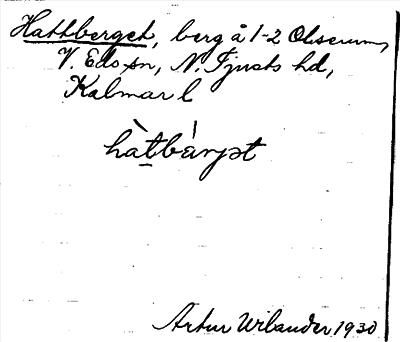 Hattberget, berg å 1-2 Olserum,
V. Eds sn, N. Tjusts hd,
Kalmar l
hàtbárjət
Artur Wilander 1930